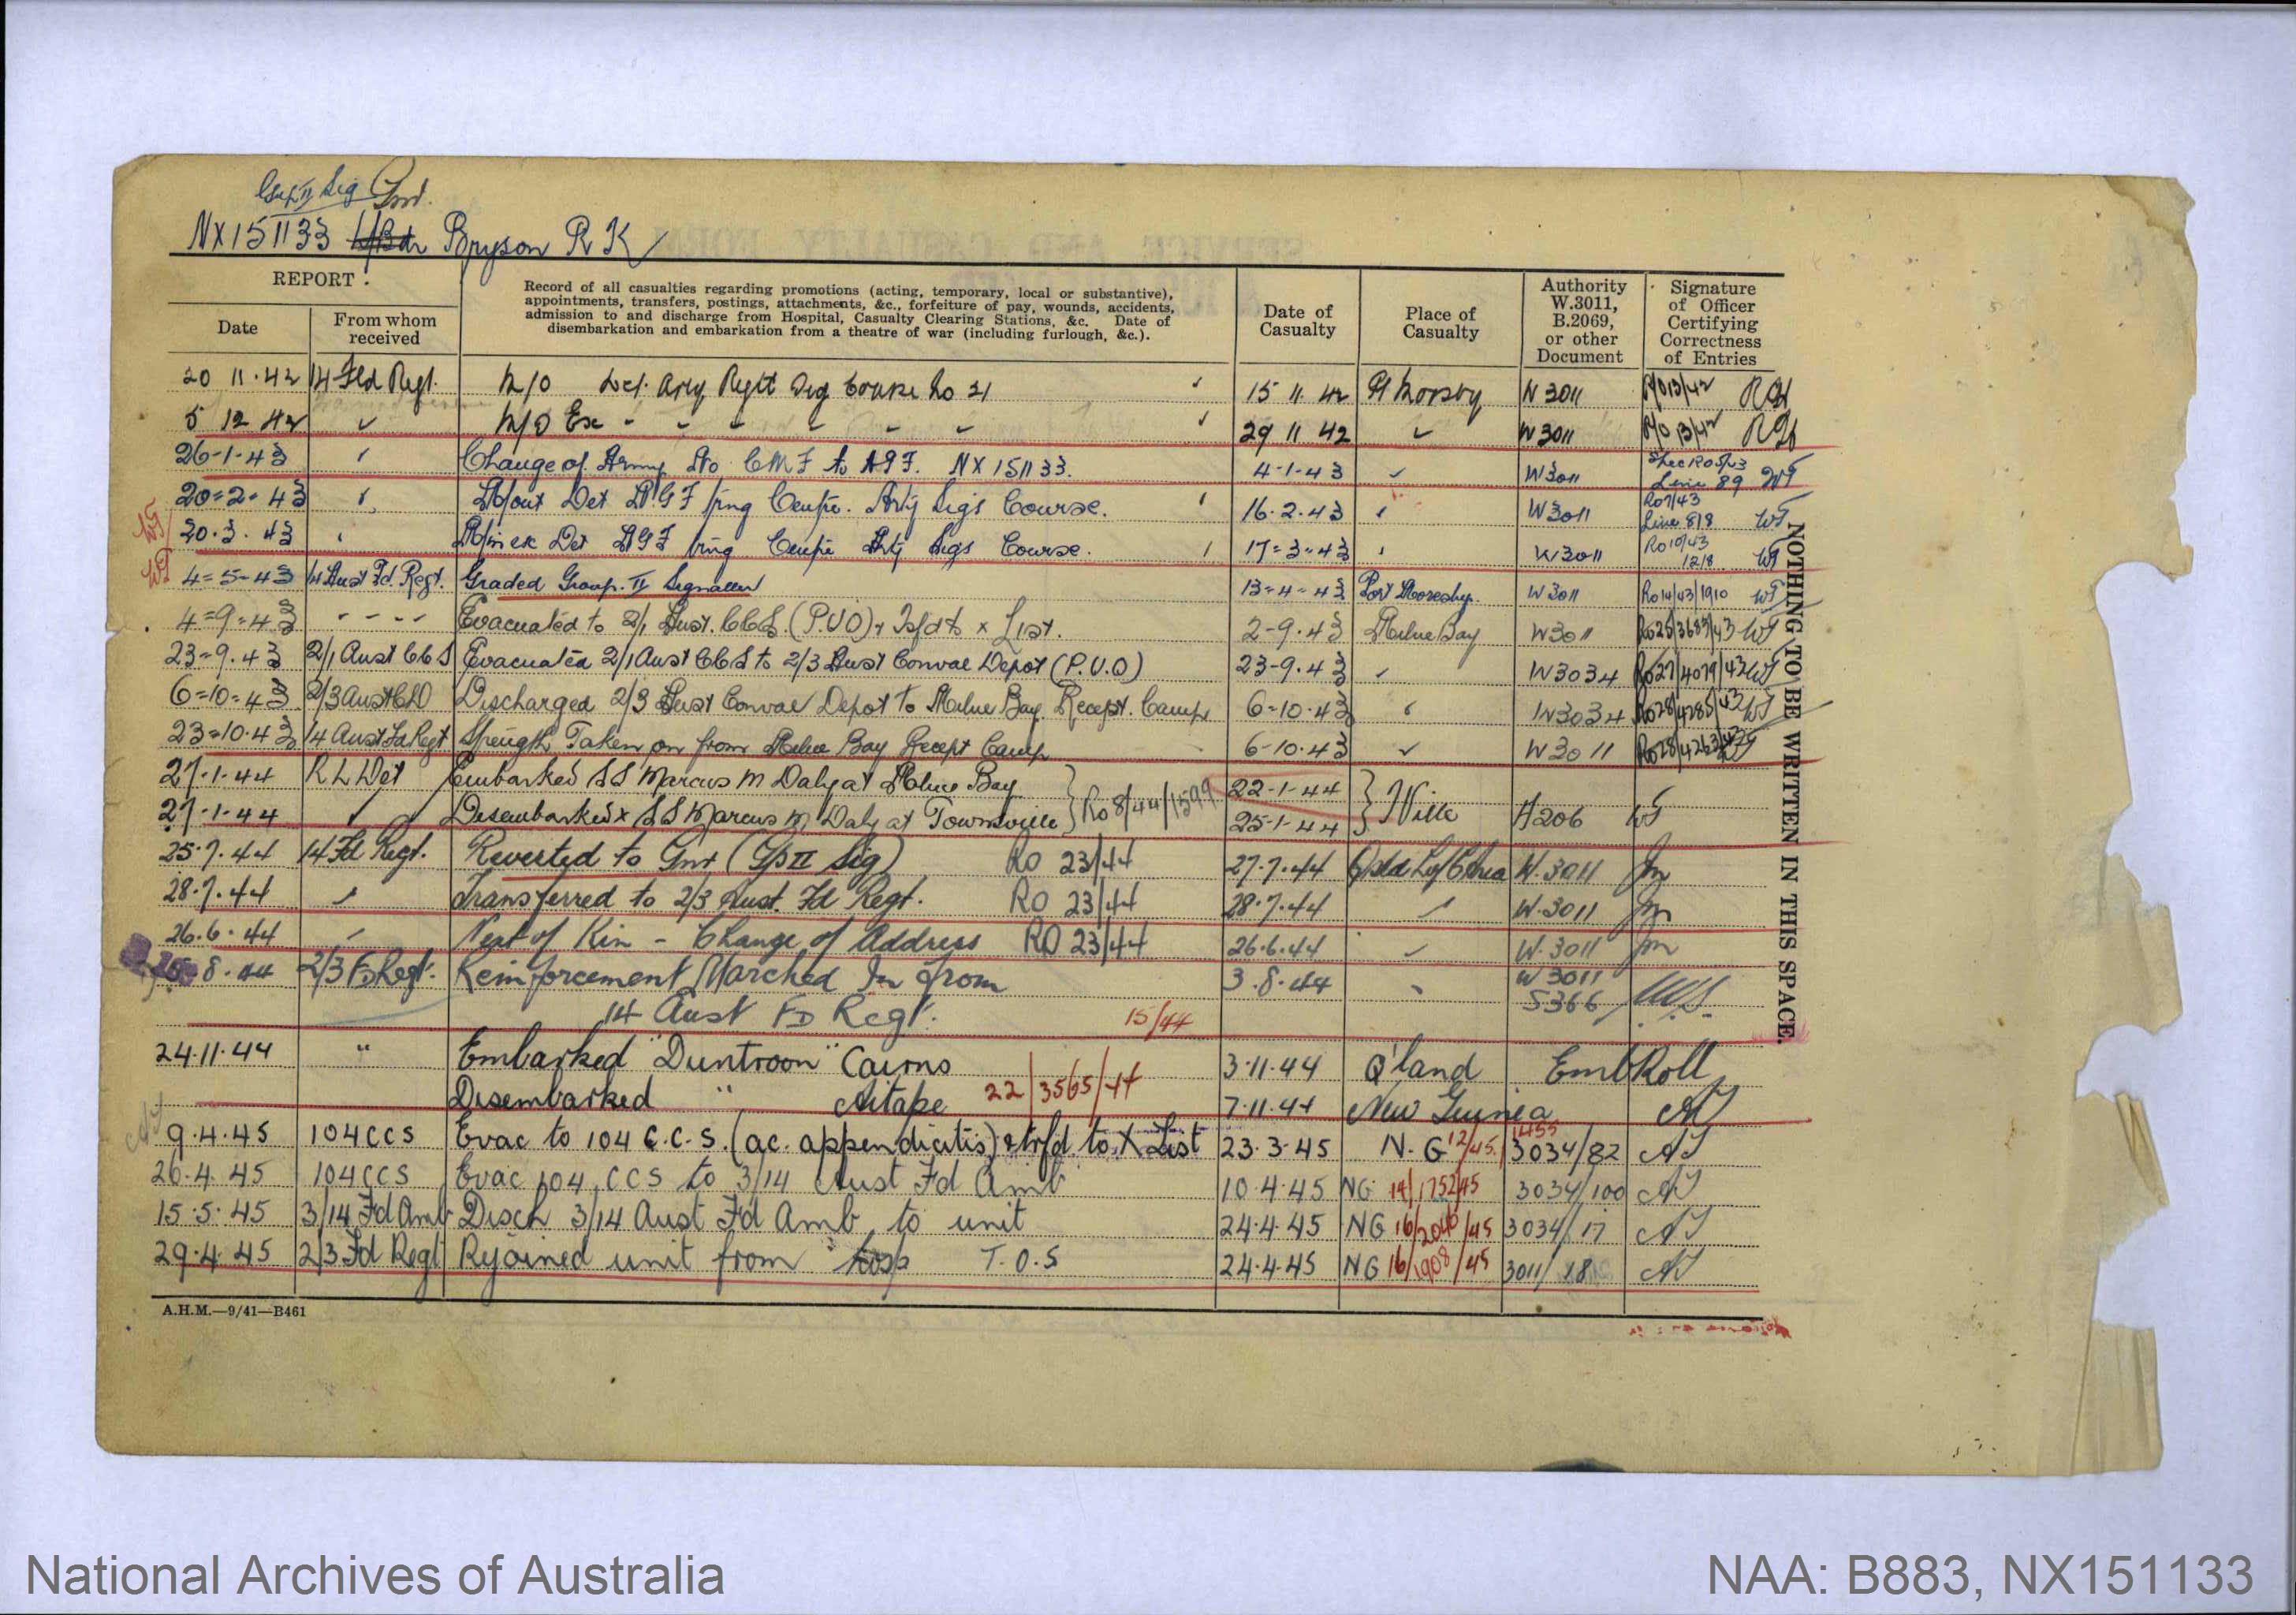 Grp II Sig Gnr.
NX151133 L/Bdr Bryson R K
REPORT.
Date
From whom received
Record of all casualties regarding promotions (acting, temporary, local or substantive),
appointments, transfers, postings, attachments, &c., forfeiture of pay, wounds, accidents,
admission to and discharge from Hospital, Casualty Clearing Stations, &c. Date of
disembarkation and embarkation from a theatre of war (including furlough, &c.).
Date of Casualty
Place of Casualty
Authority W.3011, B.2069, or other Document
Signature of Officer Certifying Correctness of Entries
20 11.42 14 Fld Regt. M/O Det. Arty Regt Sig Course No 21 15 11 42 Pt Moresby W 3011 R/O 13/42
5 12 42 M/O Ex 29 11 42 W 3011 R/O 13/42
26-1-43 Change of Army No CMF to AIF. NX 151133. 4-1-43 W3011 Line 89 WT
20-2-43 M/out Det Centre. Arty Sigs Course. 16.2.43 W3011 Ro7/43 Line 818 WT
20.3.43 M/in ex Det Centre Arty Sigs Course. 17-3-43 W3011 Ro10/43 1218 WT
4-5-43 14 Aust Fd. Regt. Graded Group. II Signaller 13-4-43 Port Moresby. W3011 Ro14/43/1910 WT
4-9-43 Evacuated to 2/1 Aust. CCS. (P.U.O) + Tsfd to x List. 2-9-43 Milne Bay W3011 WT
23-9-43 2/1 Aust CCS Evacuated 2/1 Aust CCS to 2/3 Aust Conval Depot (P.U.O) 23-9-43 W3034 Ro27/4079/43 WT
6-10-43 2/3 Aust CD Discharged 2/3 Aust Conval Depot to Milne Bay Recept. Camp 6-10-43 W3034 Ro28/4285/43 WT
23-10-43 14 Aust Fd Regt Strength Taken on from Milne Bay Recept Camp 6-10-43 W3011
27-1-44 R L Det Embarked SS Marcus M Daly at Milne Bay 22-1-44
Ro 8/44/1599 T'Ville A206 WT
27-1-44 Disembarked x SS Marcus M Daly at Townsville 25-1-44
25.7.44 14 Fd Regt. Reverted to Gnr (Gp II Sig) RO 23/44 27.7.44 Qsld L of C Area W.3011
28.7.44 Transferred to 2/3 Aust. Fd Regt. RO 23/44 28.7.44 W.3011
26.6.44 Next of Kin - Change of Address RO 23/44 26.6.44 W.3011
8.44 2/3 Fd Regt. Reinforcement Marched In from 3.8.44 W3011
14 Aust Fd Regt. 15/44 5366
24.11.44 " Embarked "Duntroon" Cairns 3.11.44 Q'land Emb Roll
Disembarked " Aitape 22/3565/44 7.11.44 New Guinea
9.4.45 104 CCS Evac to 104 C.C.S. (ac. appendicitis) & trfd to X List 23.3.45 N.G 12/45 1455 3034/82
26.4.45 104 CCS Evac 104 CCS to 3/14 Aust Fd Amb 10.4.45 NG 14/1752/45 3034/100
15.5.45 3/14 Fd Amb Disch 3/14 Aust Fd Amb to unit 24.4.45 NG 16/2040/45 3034/17
29.4.45 2/3 Fd Regt Rejoined unit from hosp T.O.S 24.4.45 NG 16/1908/45 3011/18
NOTHING TO BE WRITTEN IN THIS SPACE.
A.H.M.—9/41—B461
National Archives of Australia
NAA: B883, NX151133